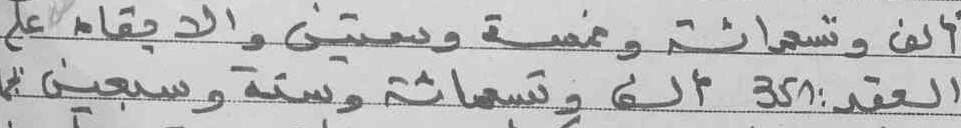 ألف وتسعمائة وخمسة وستين والابقاء على
العقد: 351 ألف وتسعمائة وستة وسبعين